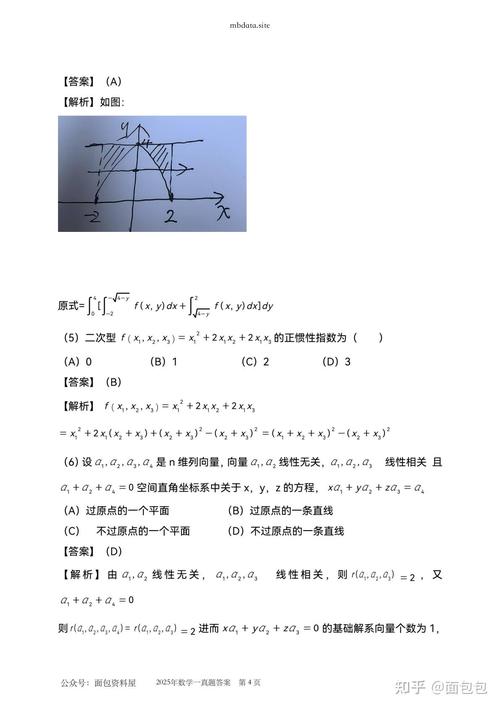 mbdata.site
【答案】（A）
【解析】如图：
y
4
-2
2
x
原式=∫₀⁴[∫₋₂^(-√(4-y)) f(x, y)dx+∫_(√(4-y))^2 f(x, y)dx]dy
（5）二次型 f(x₁, x₂, x₃)= x₁²+2x₁x₂+2x₁x₃ 的正惯性指数为（ ）
（A）0 （B）1 （C）2 （D）3
【答案】（B）
【解析】 f(x₁, x₂, x₃)= x₁²+2x₁x₂+2x₁x₃
= x₁²+2x₁(x₂+x₃)+(x₂+x₃)²-(x₂+x₃)²=(x₁+x₂+x₃)²-(x₂+x₃)²
（6）设 α₁,α₂,α₃,α₄ 是 n 维列向量，向量 α₁,α₂ 线性无关，α₁,α₂,α₃ 线性相关 且
α₁+α₂+α₄=0 空间直角坐标系中关于 x，y，z 的方程， xα₁+yα₂+zα₃=α₄
（A）过原点的一个平面 （B）过原点的一条直线
（C） 不过原点的一个平面 （D）不过原点的一条直线
【答案】（D）
【解析】由 α₁,α₂ 线性无关， α₁,α₂,α₃ 线性相关，则 r(α₁,α₂,α₃) =2 ，又
α₁+α₂+α₄=0
则 r(α₁,α₂,α₃,α₄)= r(α₁,α₂,α₃) =2 进而 xα₁+yα₂+zα₃=0 的基础解系向量个数为 1，
公众号：面包资料屋 2025年数学一真题答案 第 4 页
知乎 @面包包